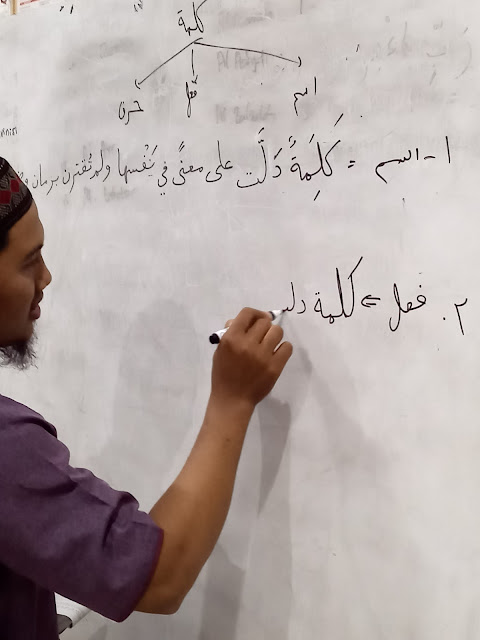 كلمة
اسم فعل حرف
١- اسم = كَلِمَةٌ دَلَّت على معنًى في نَفْسها ولم تقترن بزمان
٢. فعل ⇐ كلمة دلـ